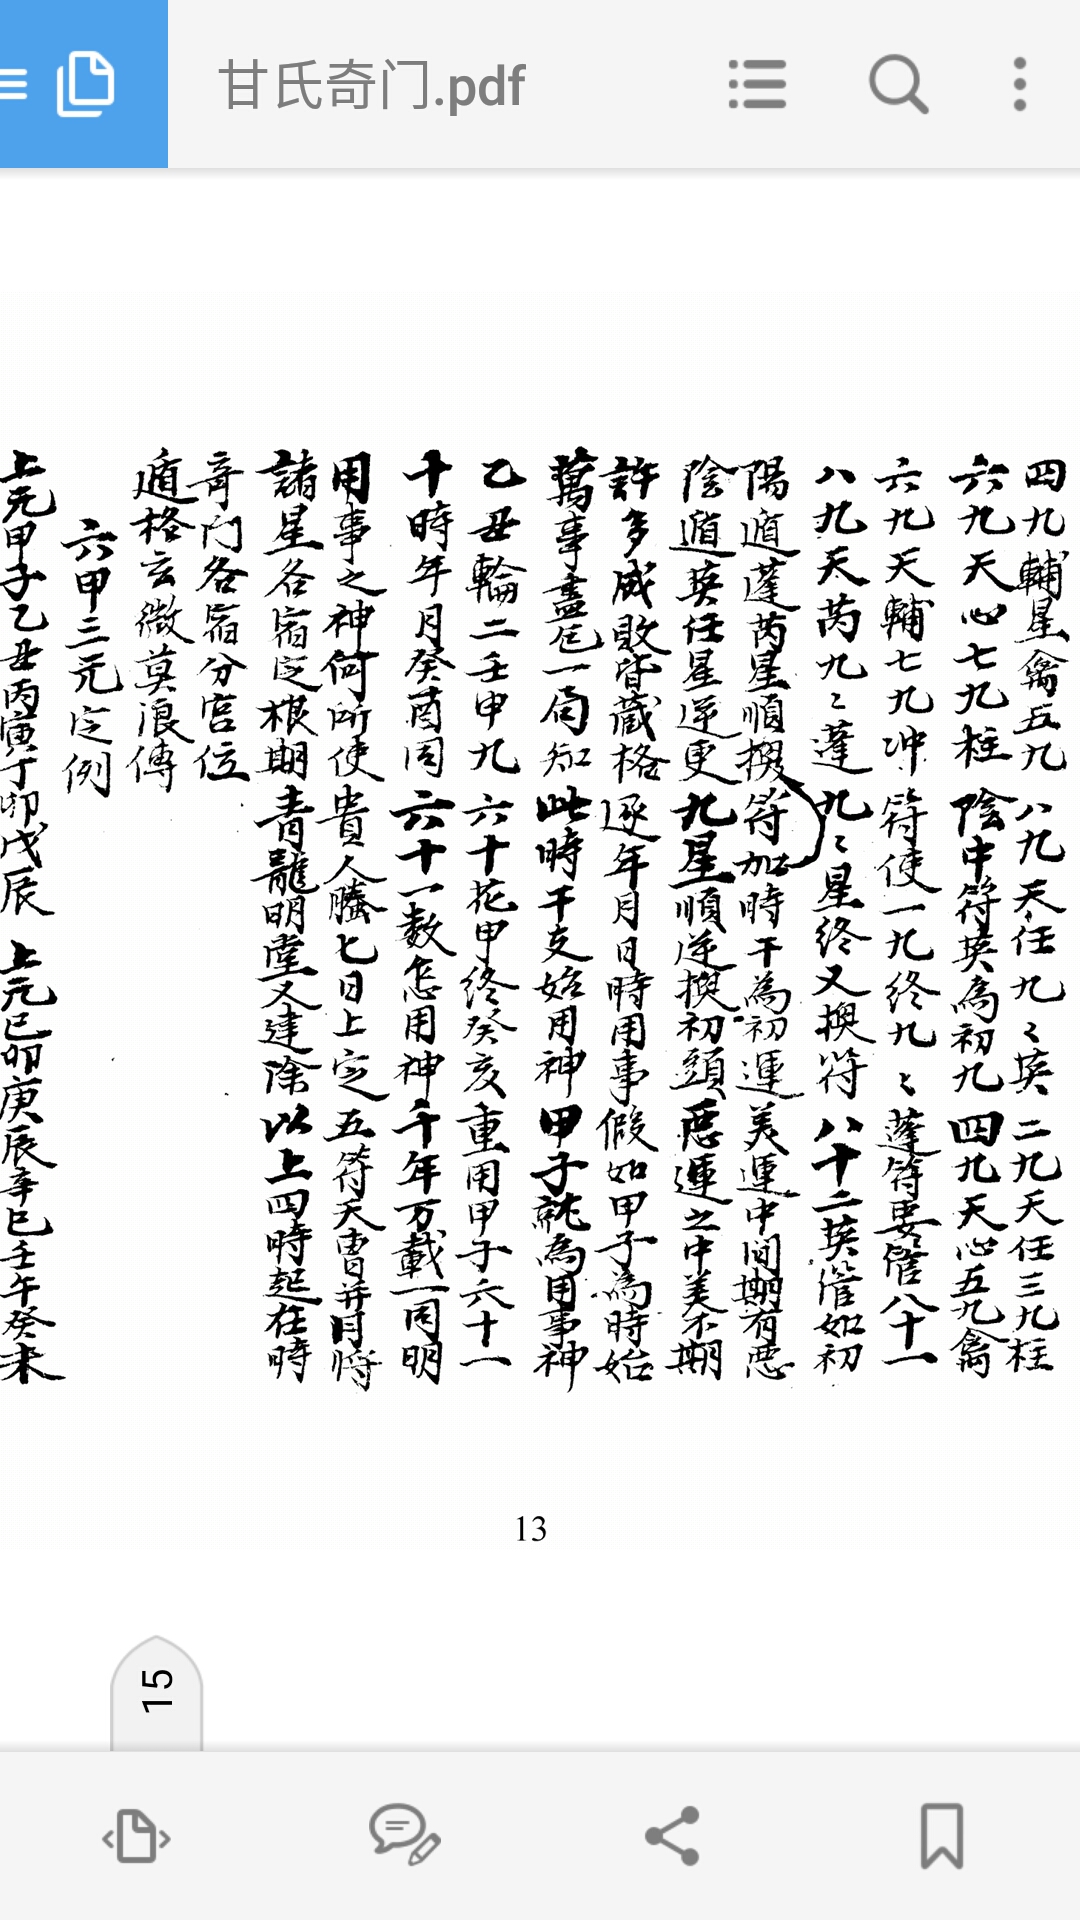 甘氏奇门.pdf
四九輔星禽五九 八九天任九〻英 二九天任三九柱
六九天心七九柱 陰中符英為初九 四九天心五九禽
六九天輔七九冲 符使一九終九〻 蓬符要管八十一
八九天芮九〻蓬 九〻星終又換符 八十二英管如初
陽遁蓬芮星順換 符加時干為初運 美運中间期有惡
陰遁英任星逆更 九星順逆換初頭 惡運之中美不期
許多成敗皆藏格 逐年月日時用事 假如甲子為時始
萬事盡在一局知 此時干支始用神 甲子就為用事神
乙丑輪二壬申九 六十花甲終癸亥 重用甲子六十一
十時年月癸酉周 六十一数怎用神 千年万載一同明
用事之神何所使 貴人螣七日上定 五符天曹并目將
諸星各宿定根期 青龍明堂又建除 以上四時起在時
奇門各宿分宫位
遁格玄微莫浪傳
六甲三元定例
上元甲子乙丑丙寅丁卯戊辰 上元己卯庚辰辛巳壬午癸未
13
15